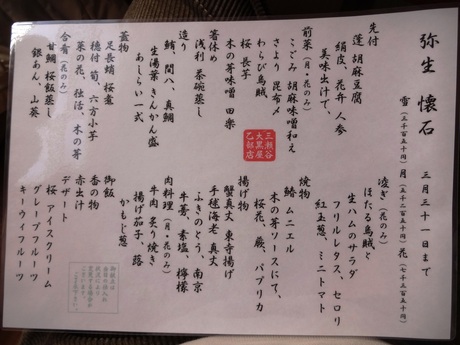 弥生 懐石 三月三十一日まで
雪 月(五千二百五十円) 花(七千三百五十円)
先付
蓬 胡麻豆腐
絹皮、花弁 人参
美味出汁で、
前菜(月・花のみ)
こごみ 胡麻味噌和え
さより 昆布〆
わらび烏賊
桜 長芋
木の芽味噌 田楽
箸休め
浅利 茶碗蒸し
造り
鮪、間八、真鯛
生湯葉きんかん盛
あしらい一式
蓋物
足長蛸 桜煮
穂付 筍、六方小芋
菜の花、独活、木の芽
合肴(花のみ)
甘鯛 桜飯蒸し
銀あん、山葵
大黒屋
凌ぎ(花のみ)
ほたる烏賊と
生ハムのサラダ
フリルレタス、セロリ
紅玉葱、ミニトマト
焼物
鰆 ムニエル
木の芽ソースにて、
桜花、蕨、パプリカ
揚げ物
蟹真丈 東寺揚げ
手毬海老 真丈
ふきのとう、南京
牛蒡、素塩、檸檬
肉料理(月・花のみ)
牛肉 炙り焼き
揚げ茄子、蕗
かもじ葱
御飯
香の物
赤出汁
デザート
桜 アイスクリーム
グレープフルーツ
キーウィフルーツ
御献立は
変更する場合が
ございます。